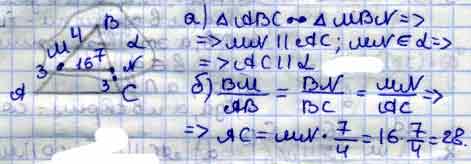 B
4
M
α
16
7
N
3
3
A
C
а) △ABC ∾ △MBN =>
=> MN || AC; MN ∈ α =>
=> AC || α
б) BM/AB = BN/BC = MN/AC =>
=> AC = MN · 7/4 = 16 · 7/4 = 28